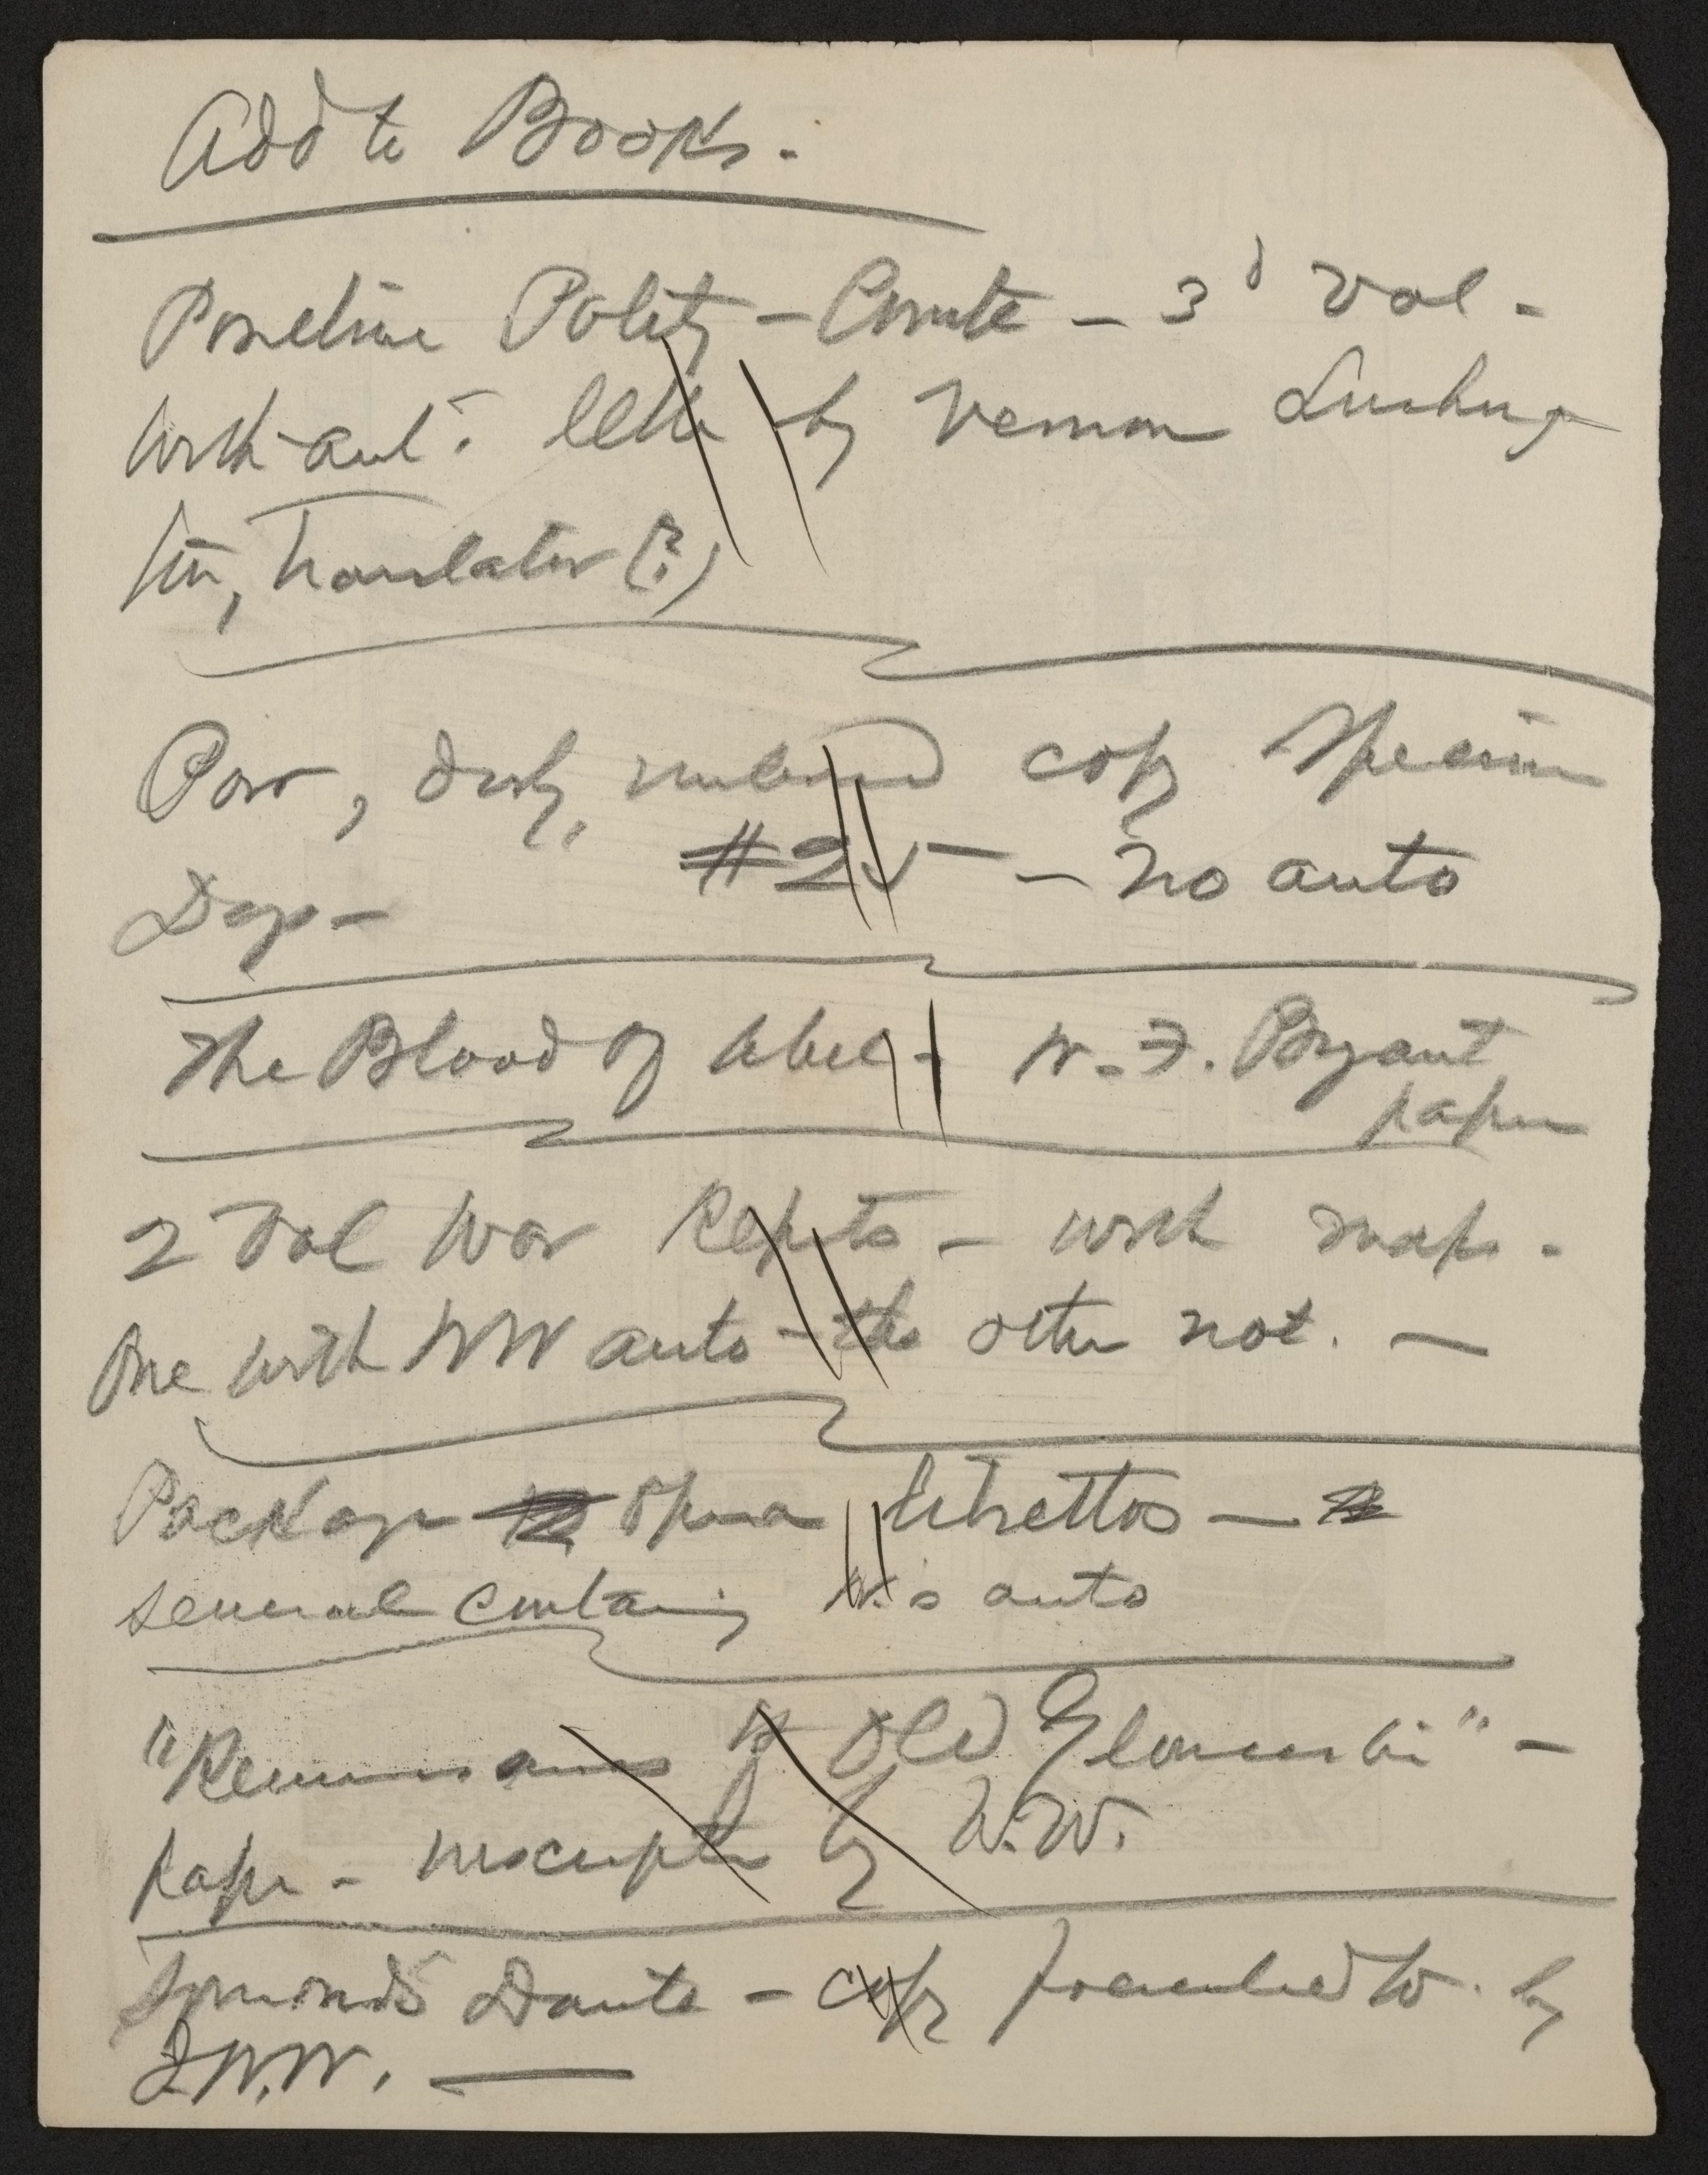 Add to Books.
Positive Polity - Comte - 3d Vol -
with aut. letter by Vernon Lushing
ton, Translator (?)
Poor, dirty, unbound copy Specimen
Days - #25 - no auto
The Blood of Abel - W. F. Bryant
paper
2 Vol War Repts - with maps.
One with WW auto - the other not. -
Package opera librettos -
several containing W.'s auto
"Reminiscences of Old Gloucester" -
paper - inscription by W.W.
Symonds' Dante - copy presented W. by
J.W.W. -